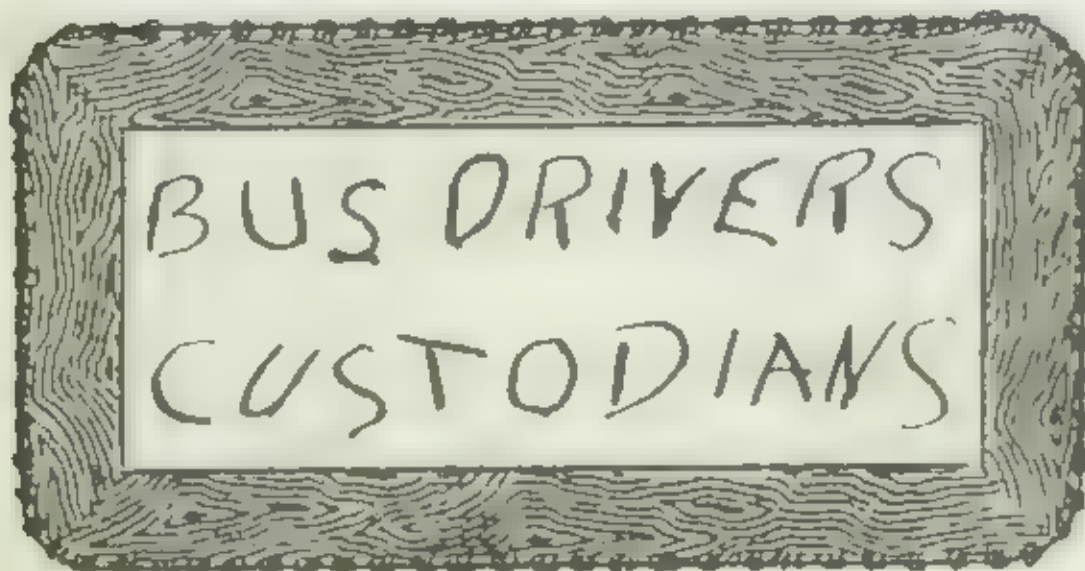 BUS DRIVERS
CUSTODIANS